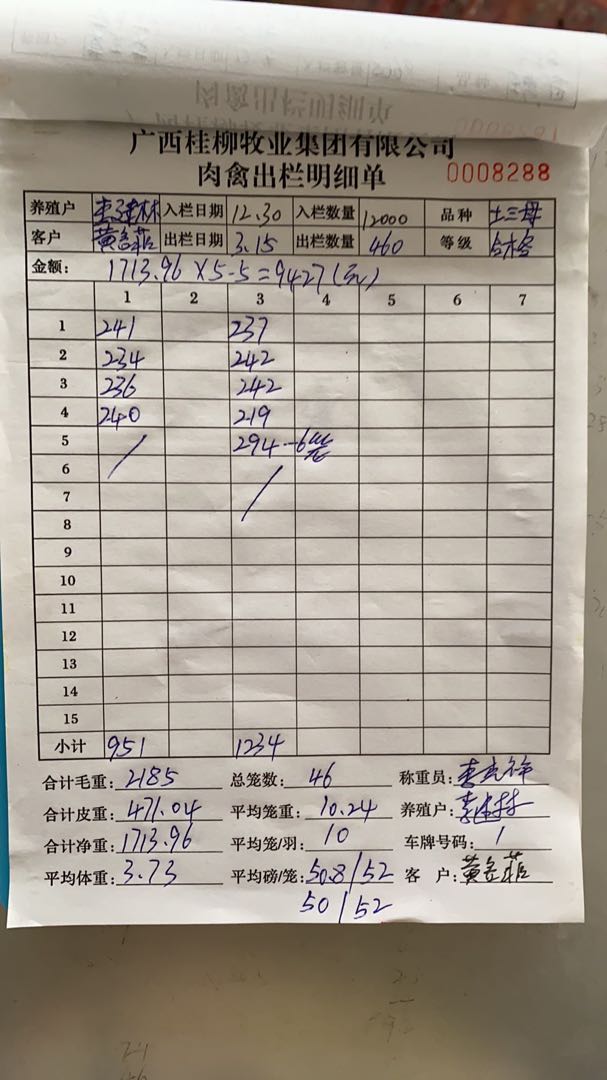 广西桂柳牧业集团有限公司
肉禽出栏明细单 0008288
养殖户 李建林 入栏日期 12.30 入栏数量 12000 品种 土三母
客户 出栏日期 3.15 出栏数量 460 等级 合格
金额: 1713.96×5.5=9427(元)
1 2 3 4 5 6 7
1 241 237
2 234 242
3 236 242
4 240 219
5 294-6笼
6
7
8
9
10
11
12
13
14
15
小计 951 1234
合计毛重: 2185 总笼数: 46 称重员:
合计皮重: 471.04 平均笼重: 10.24 养殖户: 李建林
合计净重: 1713.96 平均笼/羽: 10 车牌号码: 1
平均体重: 3.73 平均磅/笼: 50.8/52 客 户:
50/52